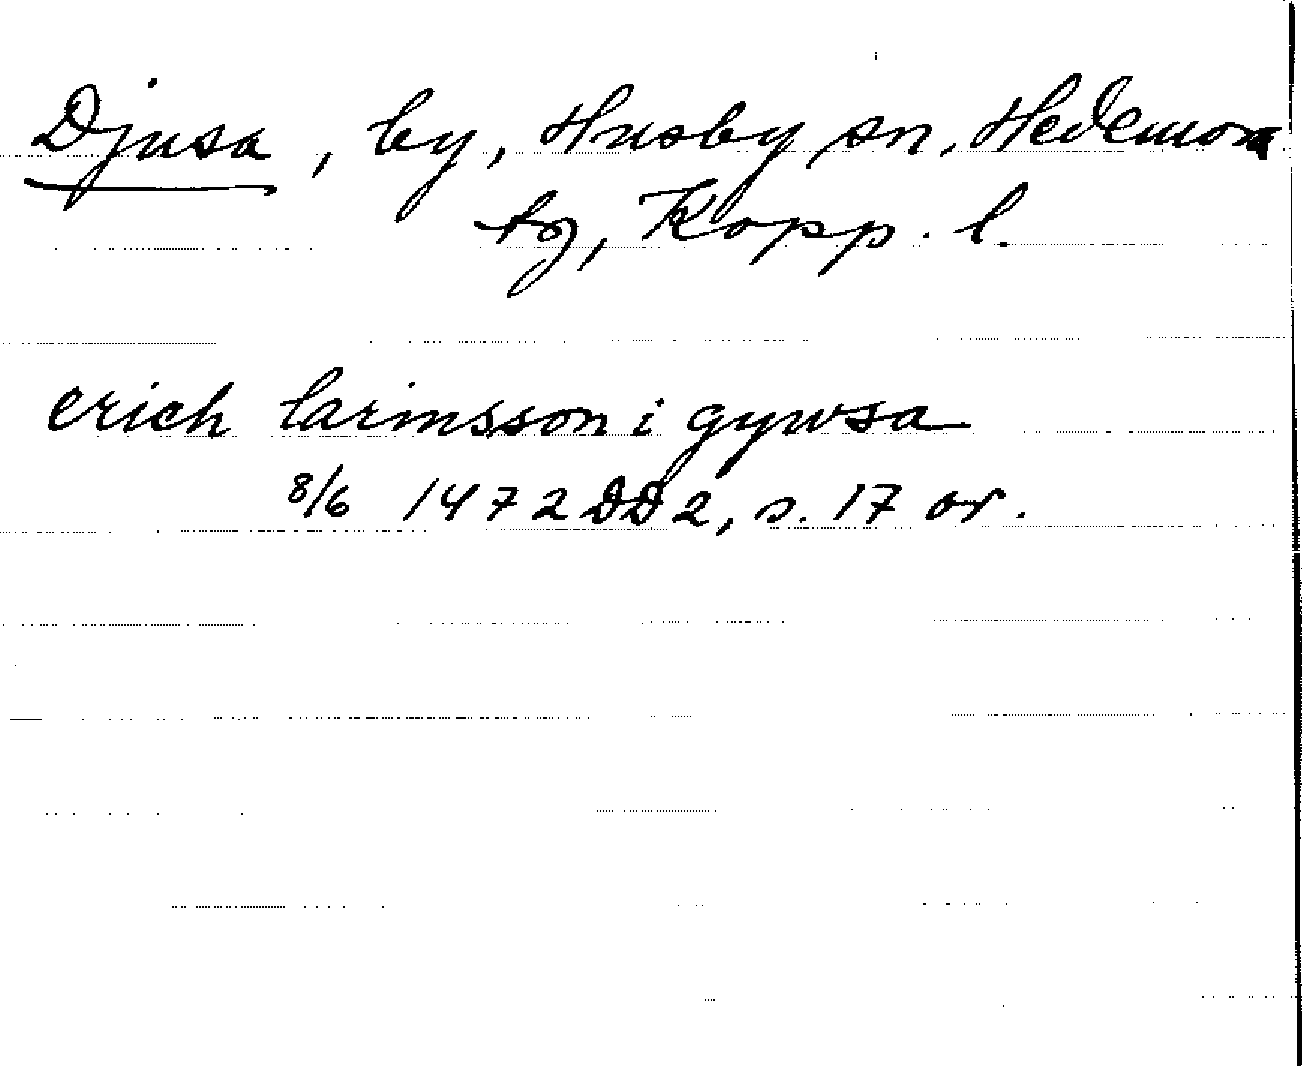 Djusa, by, Husby sn, Hedemora
tg, Kopp. l.
erich larinsson i gywsa
8/6 1472 DD 2, s. 17 or.